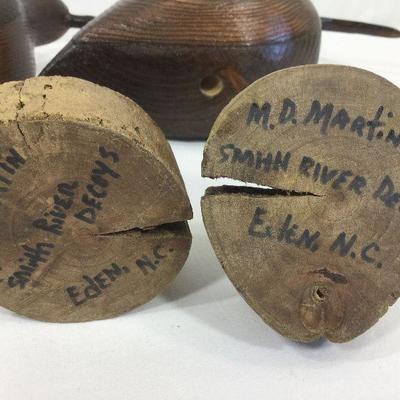 TIN
Smith River
DECOYS
Eden, N.C.
M.D. MARTIN
Smith River De
Eden, N.C.